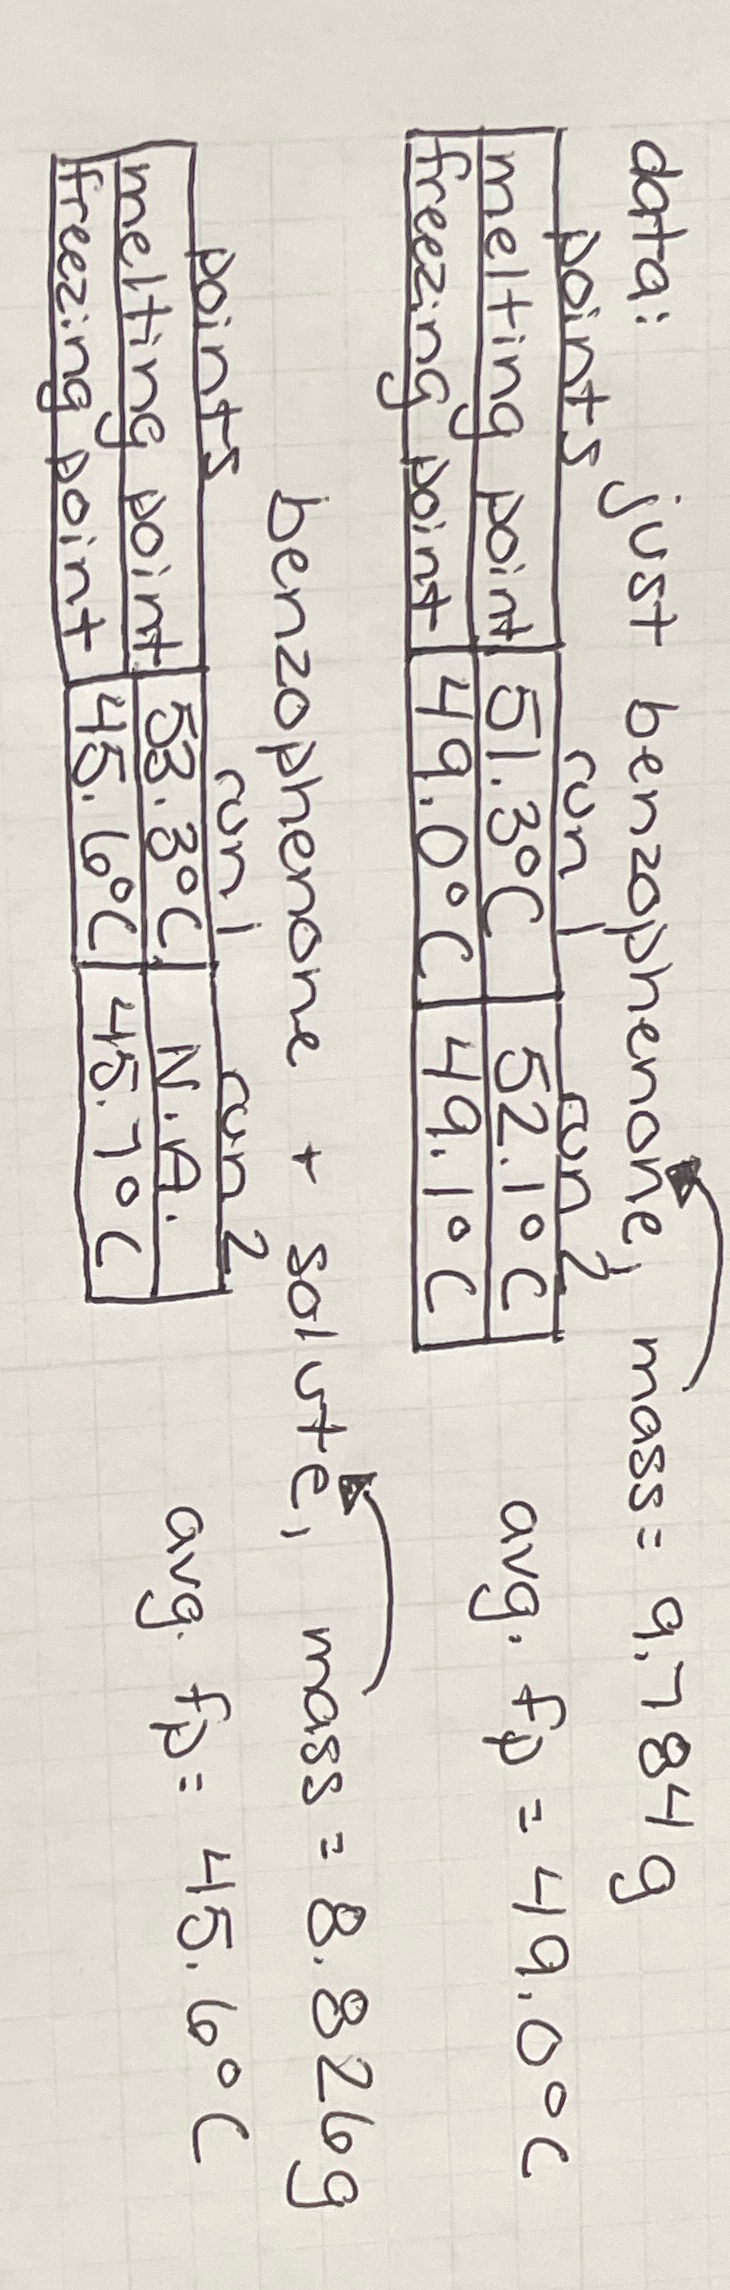 data: just benzophenone, mass= 9.784g
points run 1 run 2
melting point 51.3°C 52.1°C
freezing point 49.0°C 49.1°C
avg. fp = 49.0°C
benzophenone + solute, mass = 8.826g
points run 1 run 2
melting point 53.3°C N.A.
freezing point 45.6°C 45.7°C
avg. fp = 45.6°C